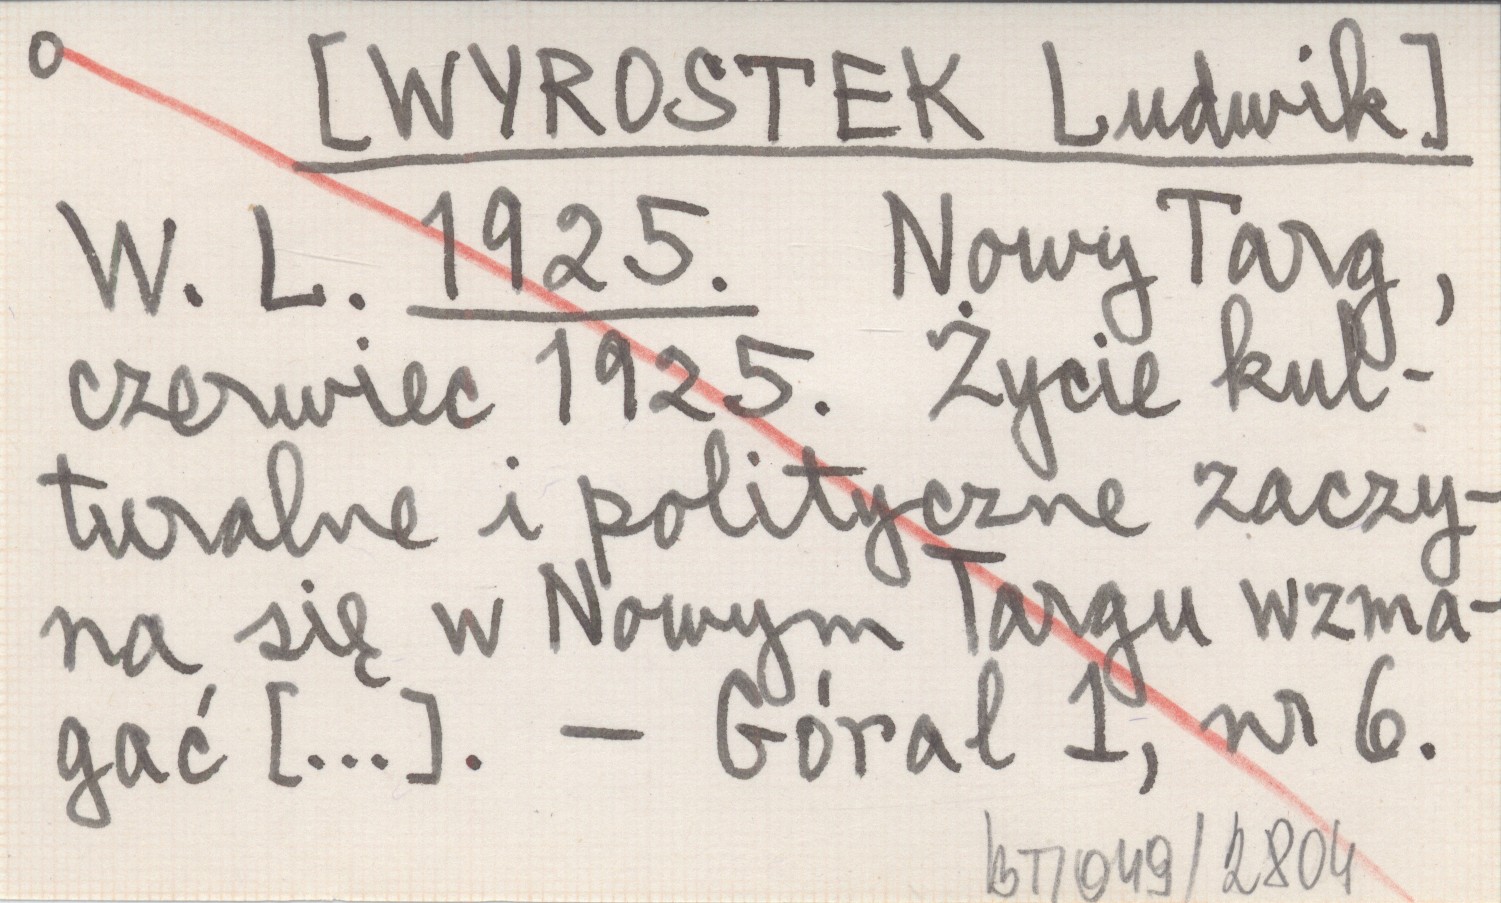 o [WYROSTEK Ludwik]
W. L. 1925. Nowy Targ,
czerwiec 1925. Życie kul-
turalne i polityczne zaczy-
na się w Nowym Targu wzma-
gać [...]. — Góral 1, nr 6.
BT/049/2804